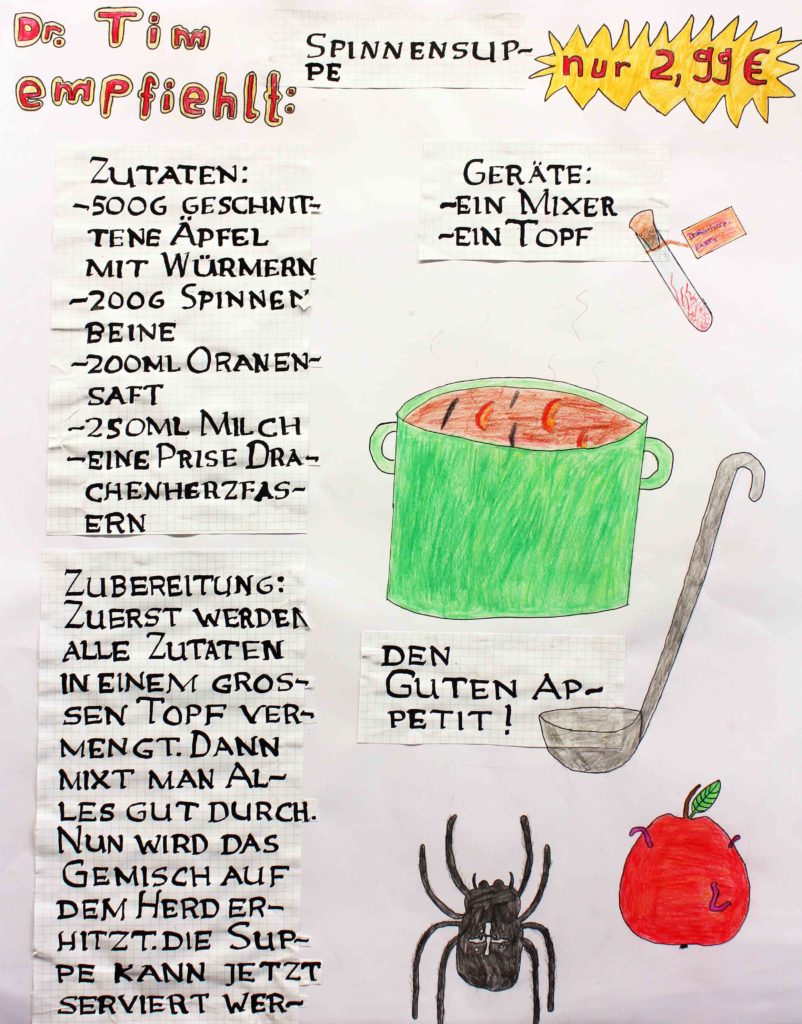 Dr. Tim
empfiehlt:
SPINNENSUP-
PE
nur 2,99€
ZUTATEN:
-500G GESCHNIT-
TENE ÄPFEL
MIT WÜRMERN
-200G SPINNEN
BEINE
-200ML ORANEN-
SAFT
-250ML MILCH
-EINE PRISE DRA-
CHENHERZFAS-
ERN
GERÄTE:
-EIN MIXER
-EIN TOPF
ZUBEREITUNG:
ZUERST WERDEN
ALLE ZUTATEN
IN EINEM GROS-
SEN TOPF VER-
MENGT. DANN
MIXT MAN AL-
LES GUT DURCH.
NUN WIRD DAS
GEMISCH AUF
DEM HERD ER-
HITZT. DIE SUP-
PE KANN JETZT
SERVIERT WER-
DEN
GUTEN AP-
PETIT!